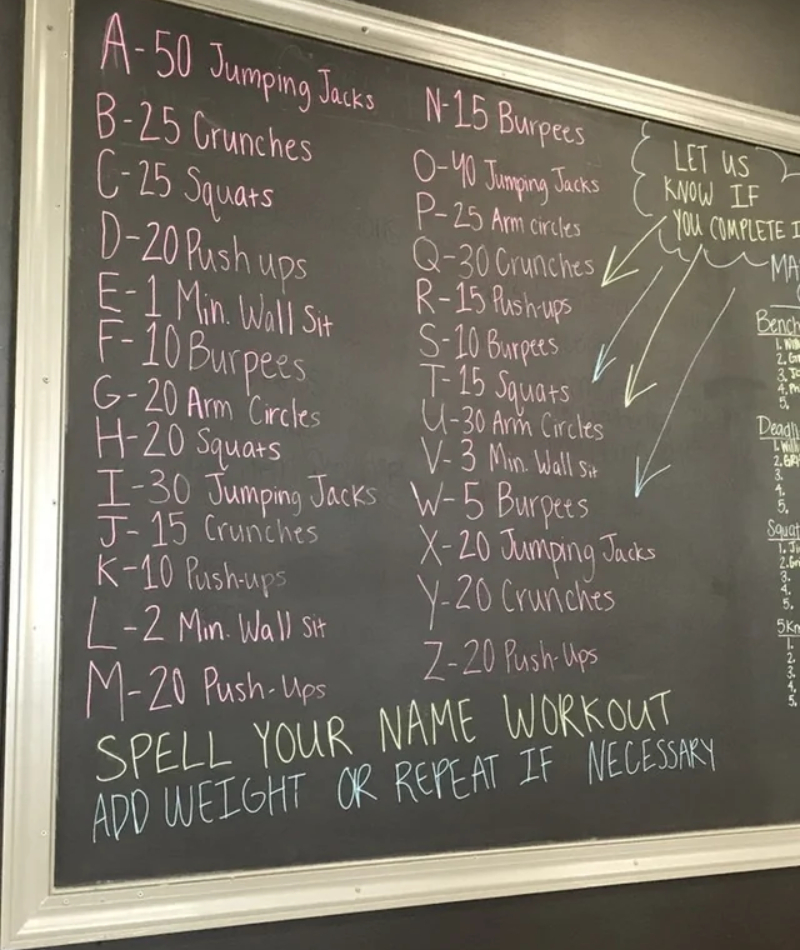 A-50 Jumping Jacks
B-25 Crunches
C-25 Squats
D-20 Push ups
E-1 Min. Wall Sit
F-10 Burpees
G-20 Arm Circles
H-20 Squats
I-30 Jumping Jacks
J-15 Crunches
K-10 Push-ups
L-2 Min. Wall Sit
M-20 Push-Ups
N-15 Burpees
O-40 Jumping Jacks
P-25 Arm circles
Q-30 Crunches
R-15 Push-ups
S-10 Burpees
T-15 Squats
U-30 Arm Circles
V-3 Min. Wall Sit
W-5 Burpees
X-20 Jumping Jacks
Y-20 Crunches
Z-20 Push-Ups
SPELL YOUR NAME WORKOUT
ADD WEIGHT OR REPEAT IF NECESSARY
LET US
KNOW IF
YOU COMPLETE I
MA
Bench
1.
2.
3.
4.
5.
Deadli
1.
2.
3.
4.
5.
Squat
1.
2.
3.
4.
5.
5Km
1.
2.
3.
4.
5.